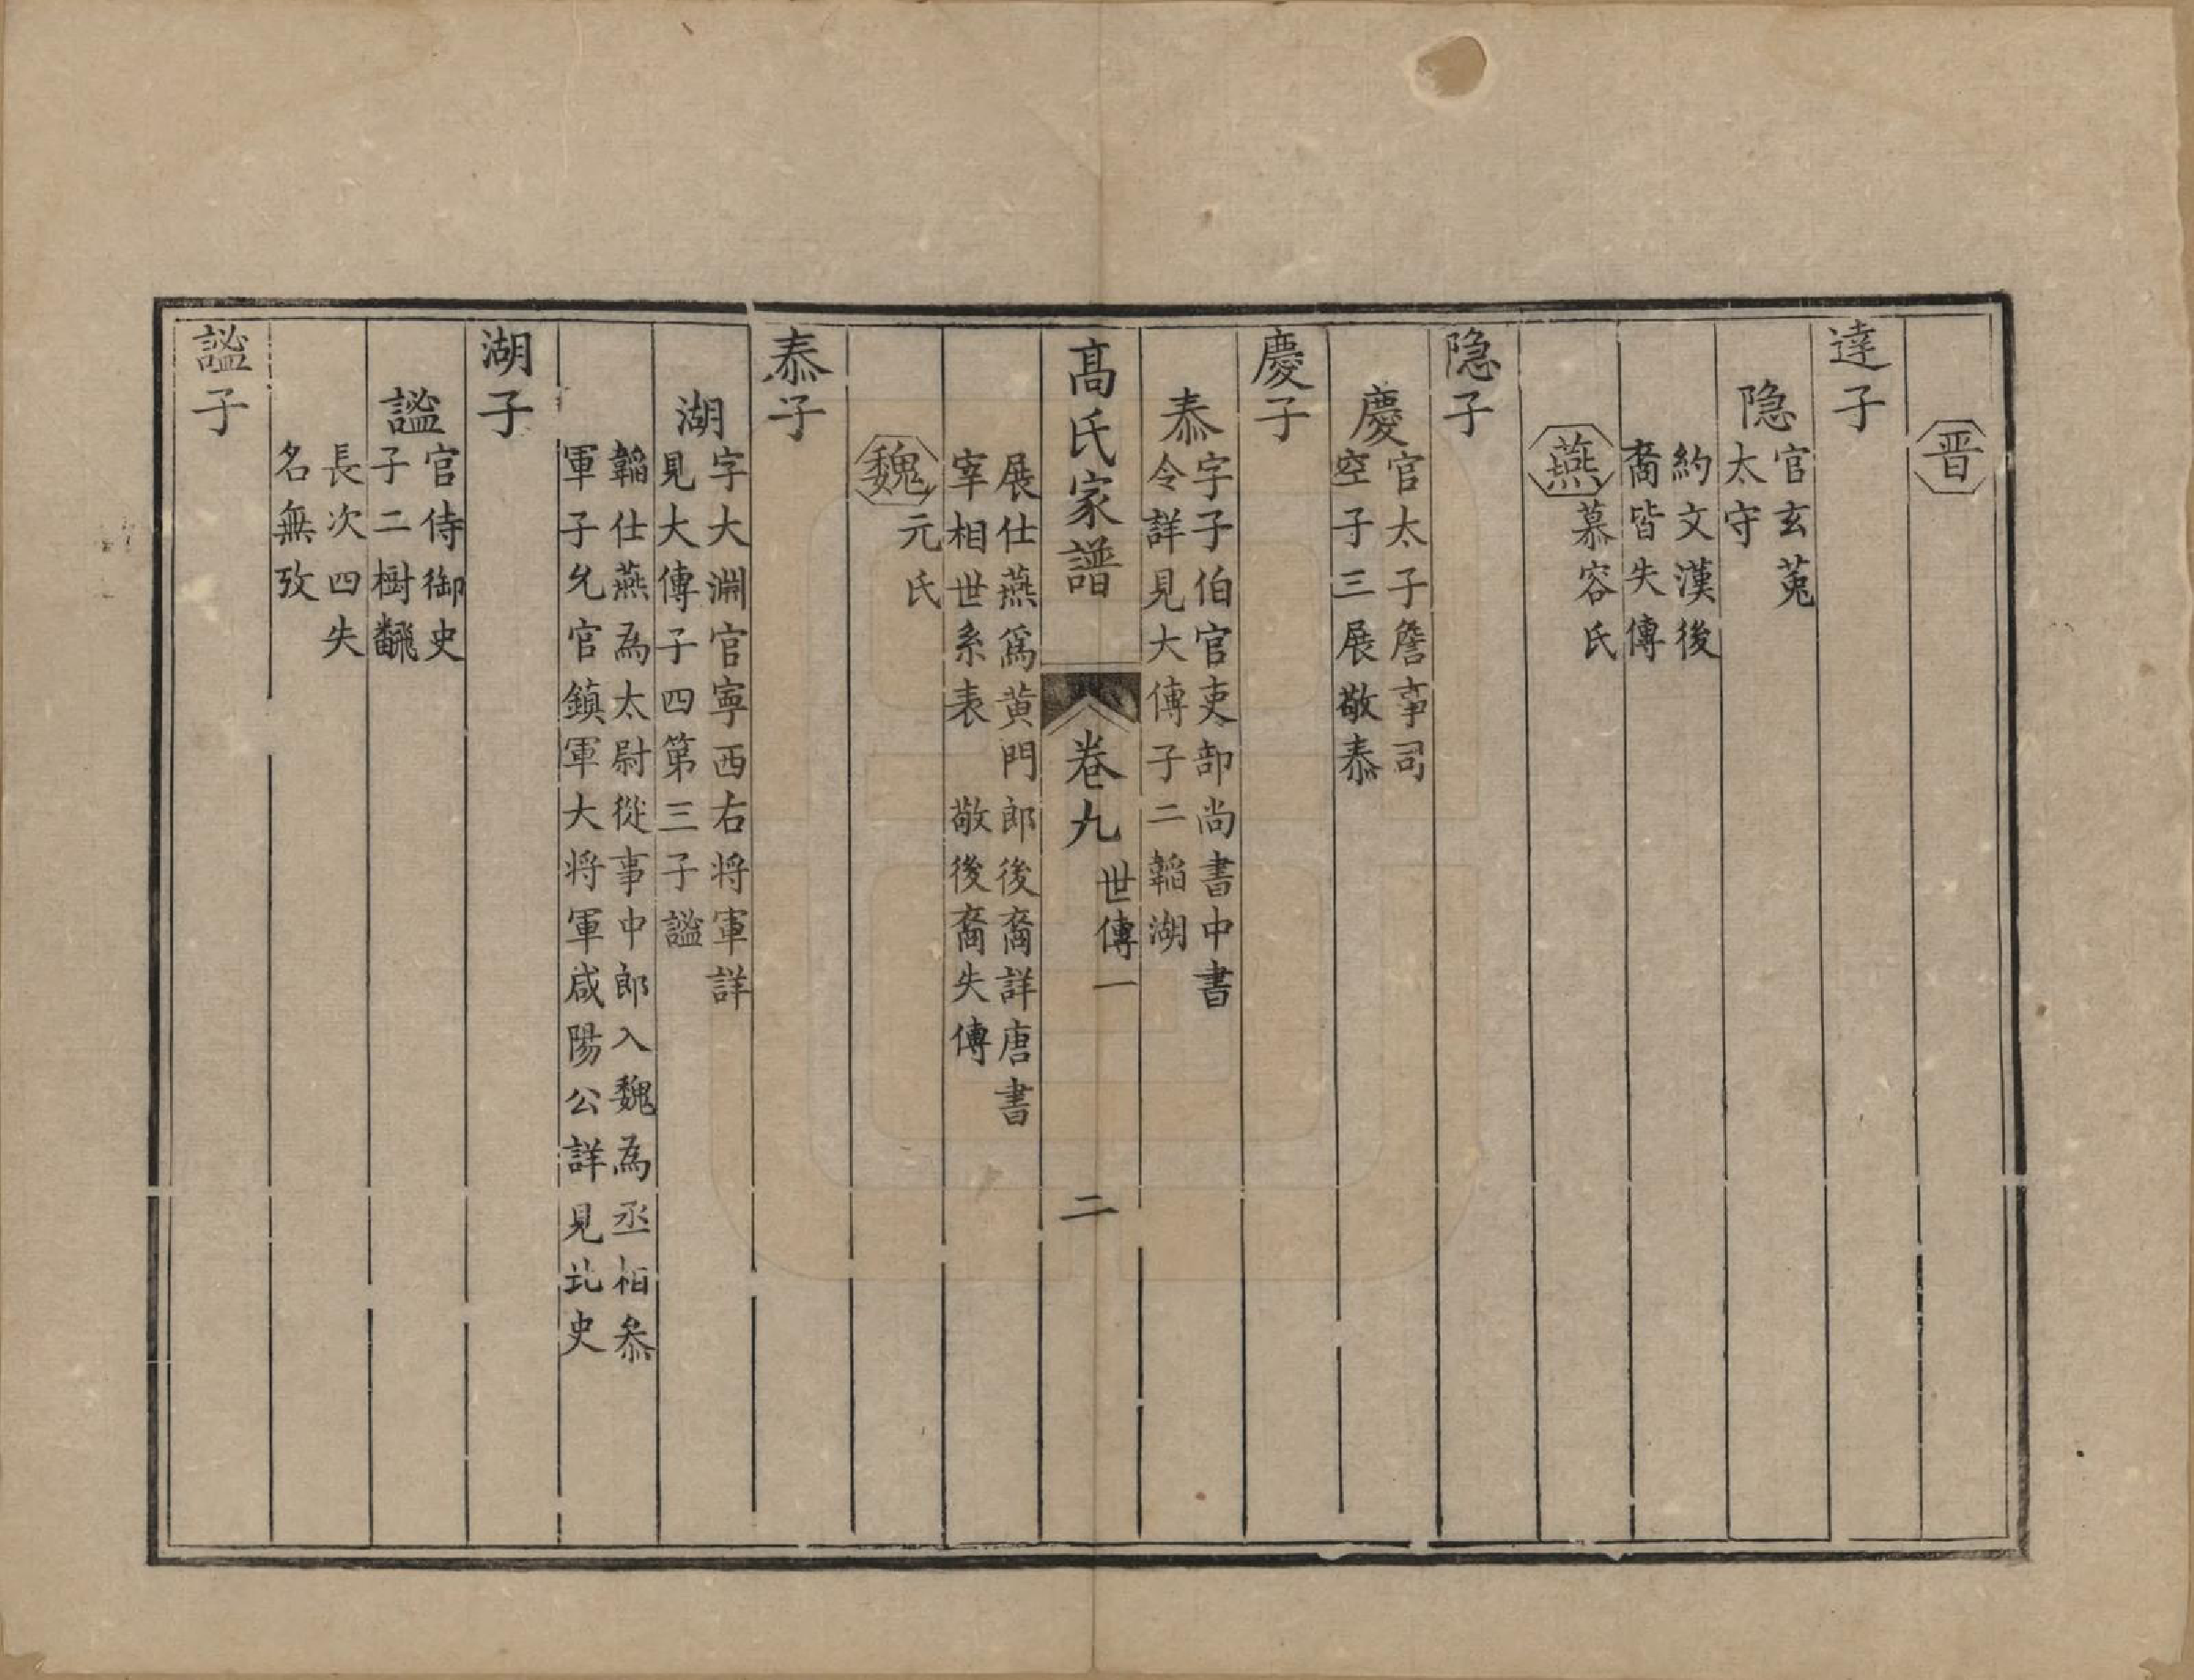 晋
達子
隐
官玄菟
太守
約文漢後
裔皆失傳
燕
慕容氏
隐子
慶
官太子詹事司
空子三展敬泰
慶子
泰
字子伯官吏部尚書中書
令詳見大傳子二韜湖
高氏家譜
卷九
世傳一
二
展仕燕爲黄門郎後裔詳唐書
宰相世系表 敬後裔失傳
魏
元氏
泰子
湖
字大淵官寧西右将軍詳
見大傳子四第三子謐
韜仕燕為太尉從事中郎入魏為丞相叅
軍子允官鎮軍大将軍咸陽公詳見北史
湖子
謐
官侍御史
子二樹飜
長次四失
名無攷
謐子